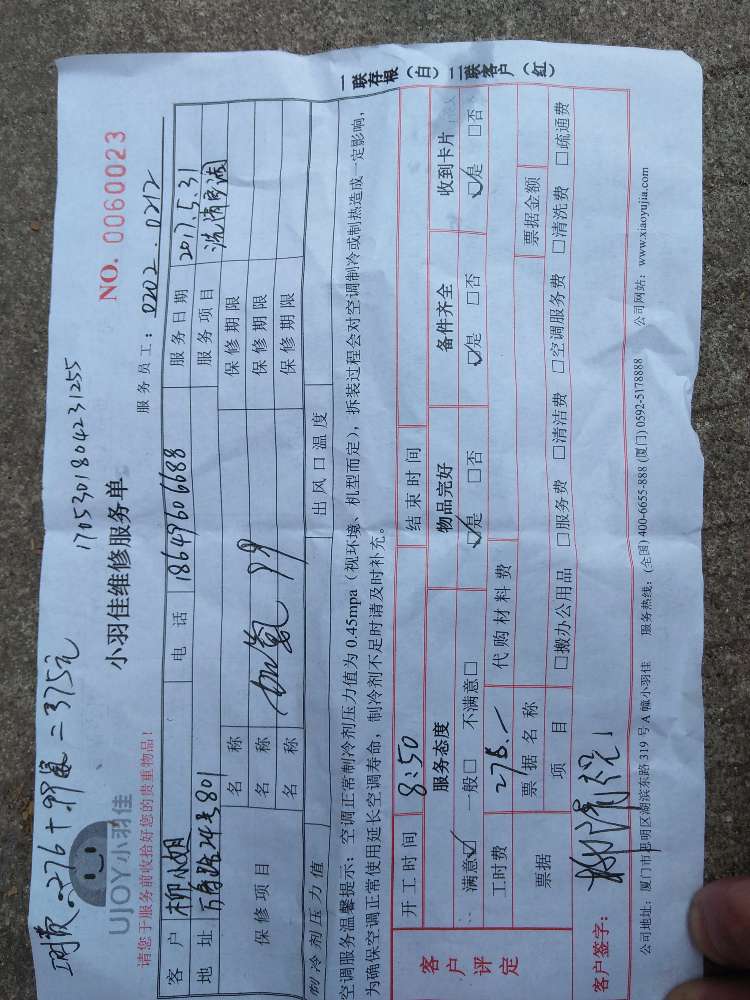 1705301804231255
收款:276+99氟=375元
UJOY小羽佳
小羽佳维修服务单
NO. 0060023
请您于服务前收拾好您的贵重物品!
服务员工: 0202 . 0212
客户 柳小姐 电话 18647606688 服务日期 2017.5.31
地址 万寿路24号801 服务项目 洗
保修项目 名称 保修期限
名称 加氟 99 保修期限
名称 保修期限
制冷剂压力值 出风口温度
空调服务温馨提示:空调正常制冷剂压力值为 0.45mpa(视环境、机型而定),拆装过程会对空调制冷或制热造成一定影响,
为确保空调正常使用延长空调寿命,制冷剂不足时请及时补充。
一联存根(白)二联客户(红)
客户评定
开工时间 8:50 结束时间
服务态度 物品完好 备件齐全 收到卡片
满意☑ 一般□ 不满意□ ☑是 □否 ☑是 □否 ☑是 □否
工时费 276.- 代购材料费
票据 票据名称 票据金额
项目 □搬办公用品 □服务费 □清洁费 □空调服务费 □清洗费 □疏通费
客户签字:
公司地址:厦门市思明区湖滨东路 319 号 A 幢小羽佳 服务热线:(全国) 400-6655-888 (厦门) 0592-5178888 公司网站:www.xiaoyujia.com